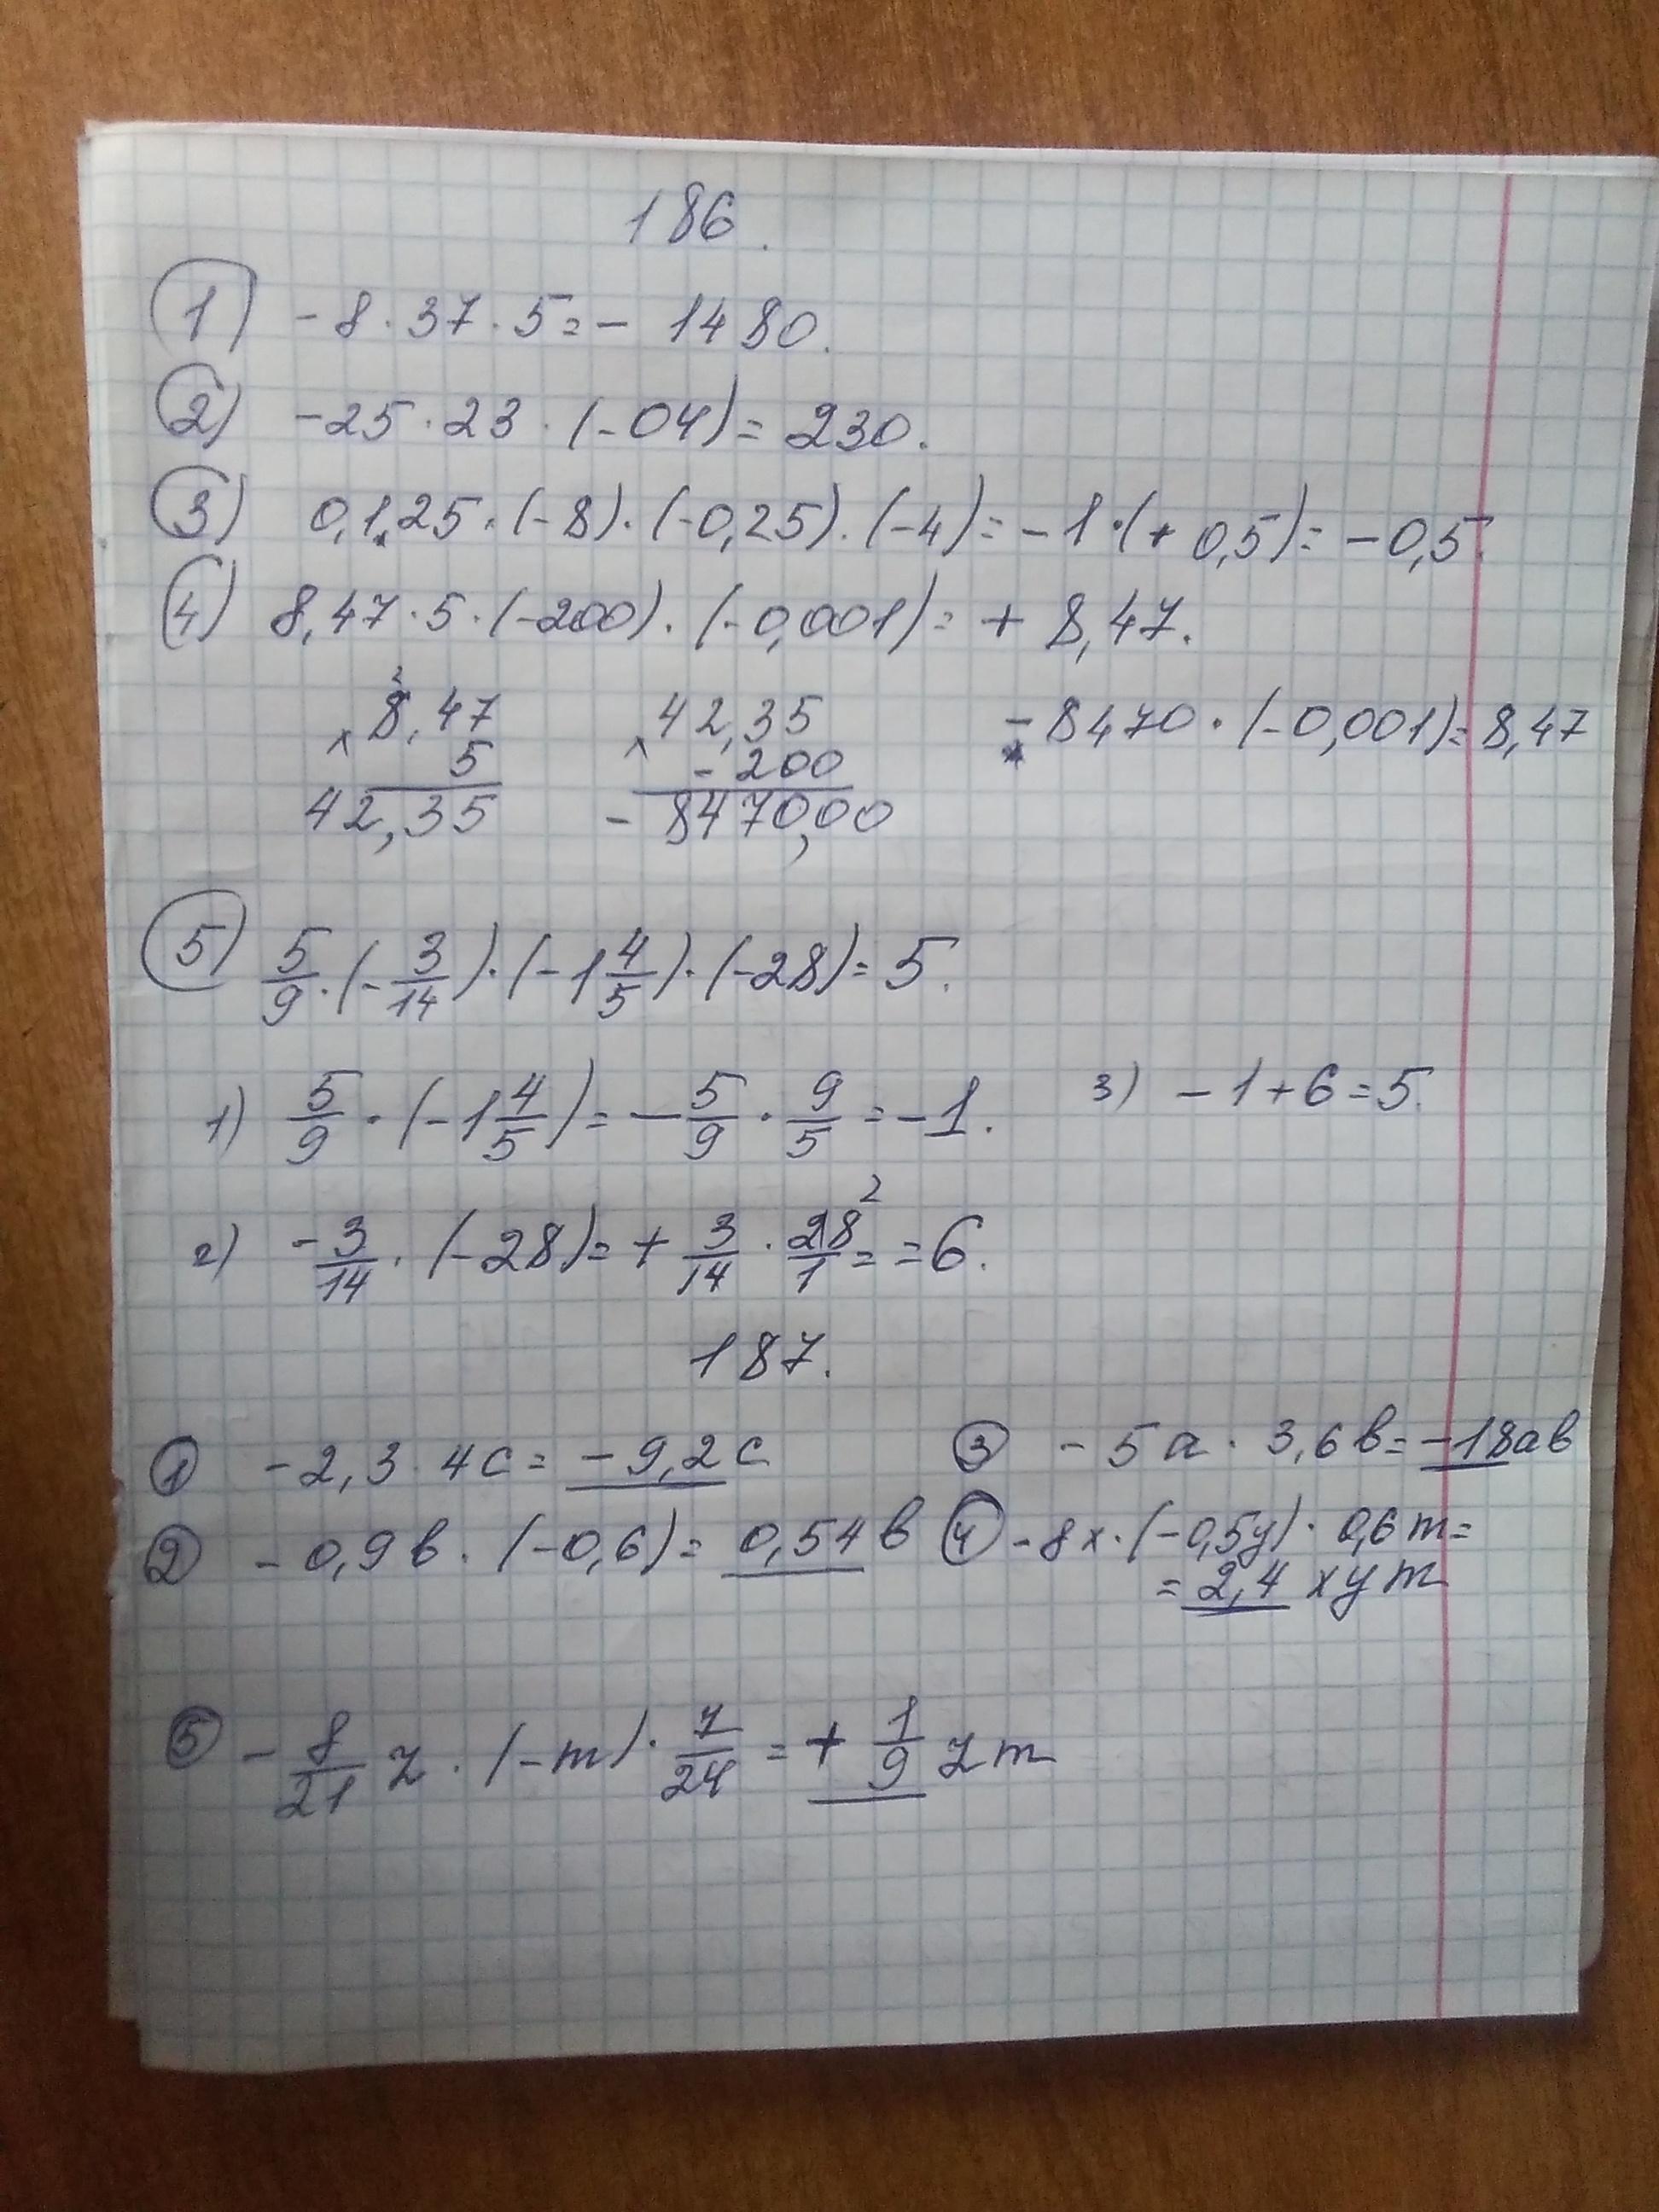 186.
1) -8·37·5=-1480.
2) -25·23·(-04)=230.
3) 0,1,25·(-8)·(-0,25)·(-4)=-1·(+0,5)=-0,5.
4) 8,47·5·(-200)·(-0,001)=+8,47.
8,47 × 5 = 42,35   42,35 × -200 = -8470,00   -8470·(-0,001)=8,47
5) 5/9·(-3/14)·(-1 4/5)·(-28)=5.
1) 5/9·(-1 4/5)=-5/9·9/5=-1.   3) -1+6=5.
2) -3/14·(-28)=+3/14·28/1 ²= =6.
187.
1 -2,3·4c=-9,2c   3 -5a·3,6b=-18ab
2 -0,9b·(-0,6)=0,54b   4 -8x·(-0,5y)·0,6m=
=2,4xym
5 -8/21 z·(-m)·7/24=+1/9 zm